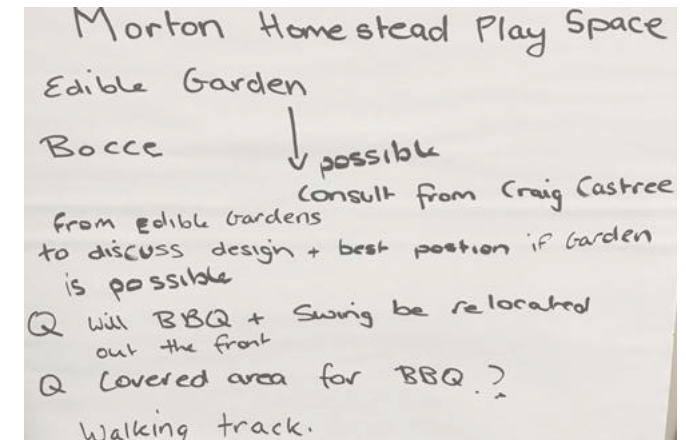 Morton Homestead Play Space
Edible Garden
Bocce
possible
Consult from Craig Castree
from Edible Gardens
to discuss design + best postion if Garden
is possible
Q will BBQ + Swing be relocated
out the front
Q Covered area for BBQ.?
Walking track.